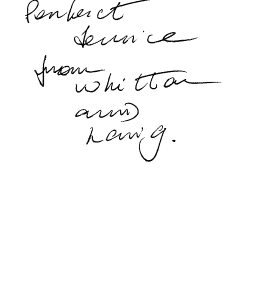 Perfect
service
from
whitton
and
Laing.